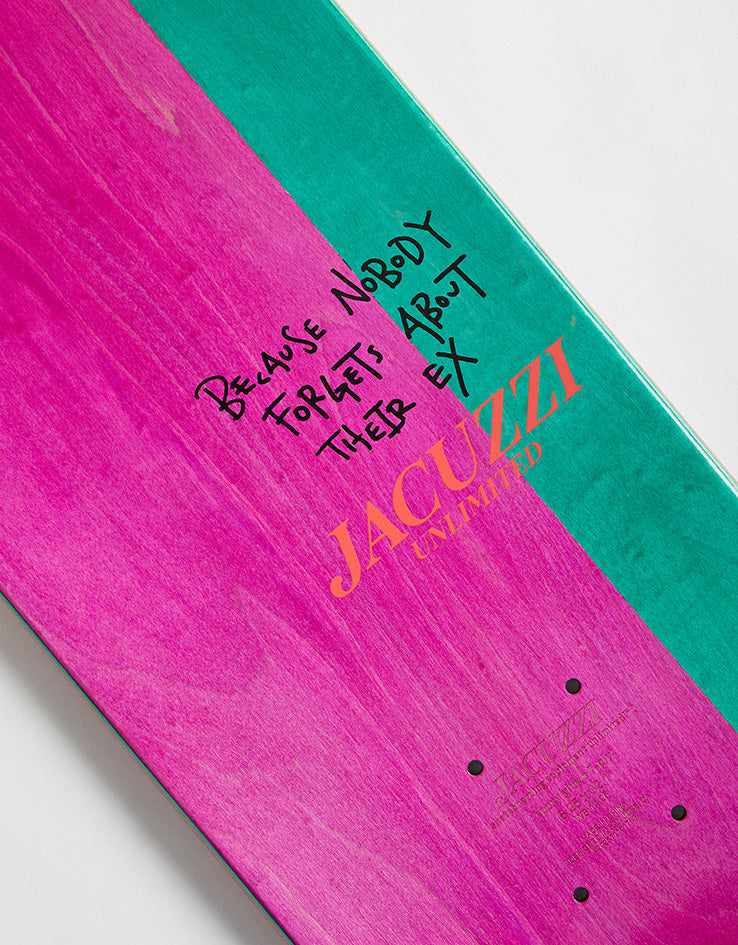 BECAUSE NOBODY
FORGETS ABOUT
THEIR EX
JACUZZI
UNLIMITED
JACUZZI